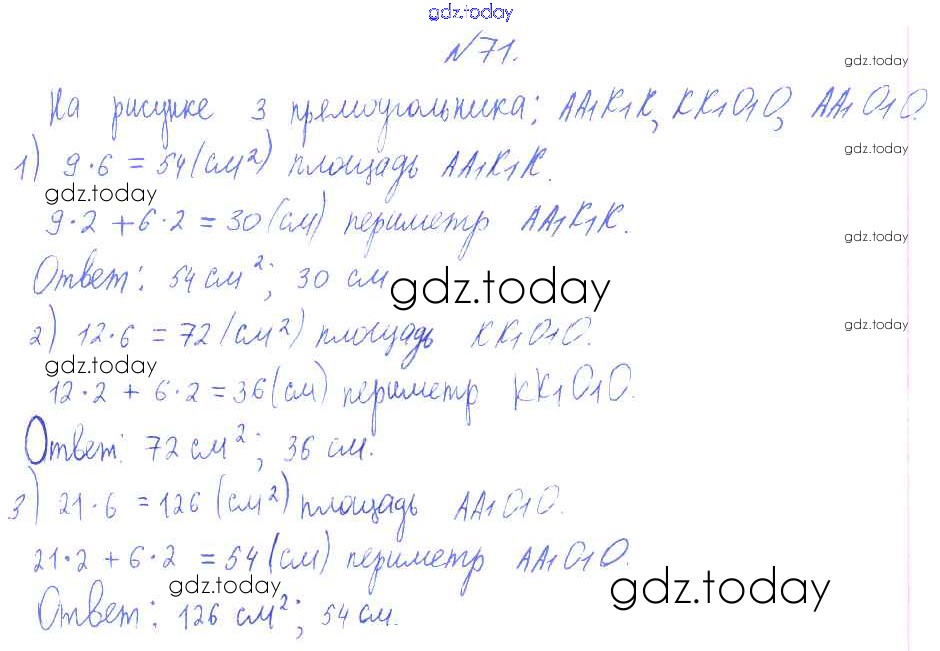 gdz.today
№71.
gdz.today
На рисунке 3 прямоугольника: AA1K1K, KK1O1O, AA1O1O.
gdz.today
1) 9·6 = 54 (см²) площадь AA1K1K.
gdz.today
9·2 + 6·2 = 30 (см) периметр AA1K1K.
gdz.today
Ответ: 54 см²; 30 см
gdz.today
2) 12·6 = 72 (см²) площадь KK1O1O.
gdz.today
gdz.today
12·2 + 6·2 = 36 (см) периметр KK1O1O.
Ответ: 72 см²; 36 см.
3) 21·6 = 126 (см²) площадь AA1O1O.
21·2 + 6·2 = 54 (см) периметр AA1O1O.
gdz.today
gdz.today
Ответ: 126 см²; 54 см.